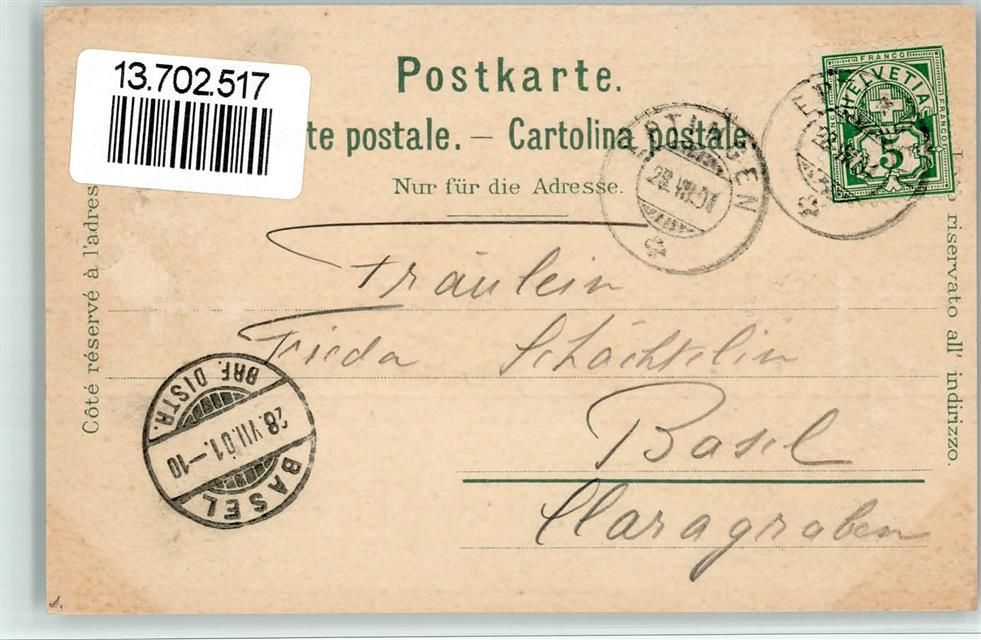 13.702.517
Postkarte.
te postale. – Cartolina postale
Nur für die Adresse.
Côté réservé à l'adres
riservato all' indirizzo.
FRANCO
HELVETIA
FRANCO
5
28.VII.01
Fräulein
Frieda Schächtelin
Basel
Claragraben
BASEL
28.VII.01.–10
BRF. DISTR.